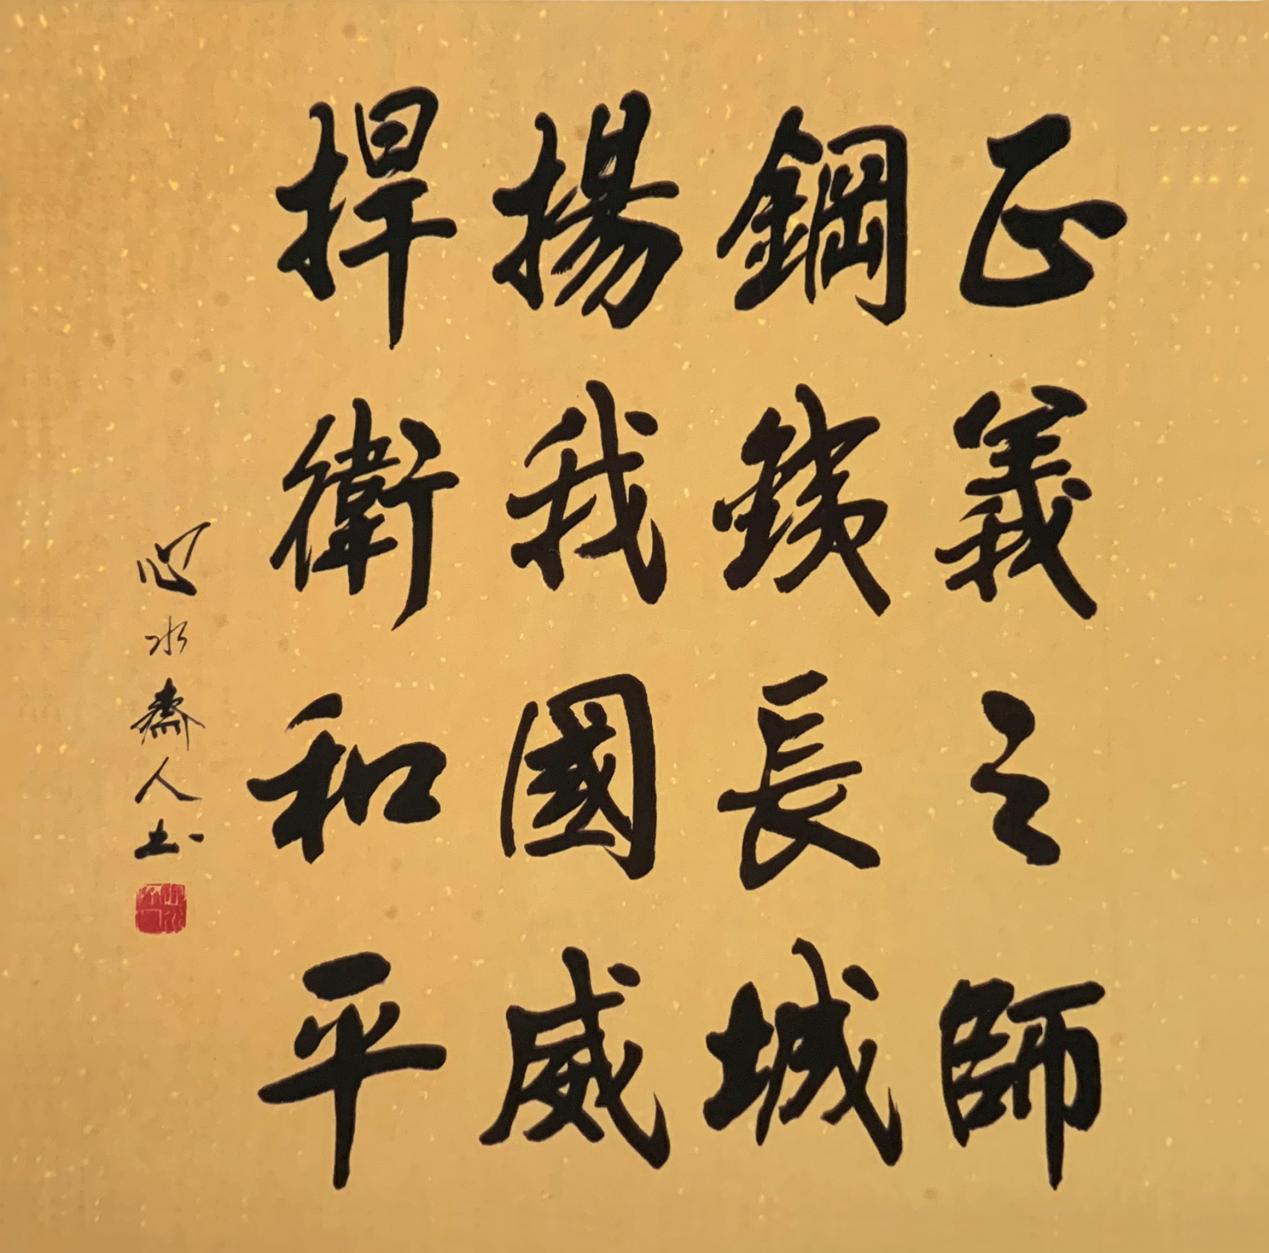 正義之師
鋼銕長城
揚我國威
捍衛和平
心水齋人书